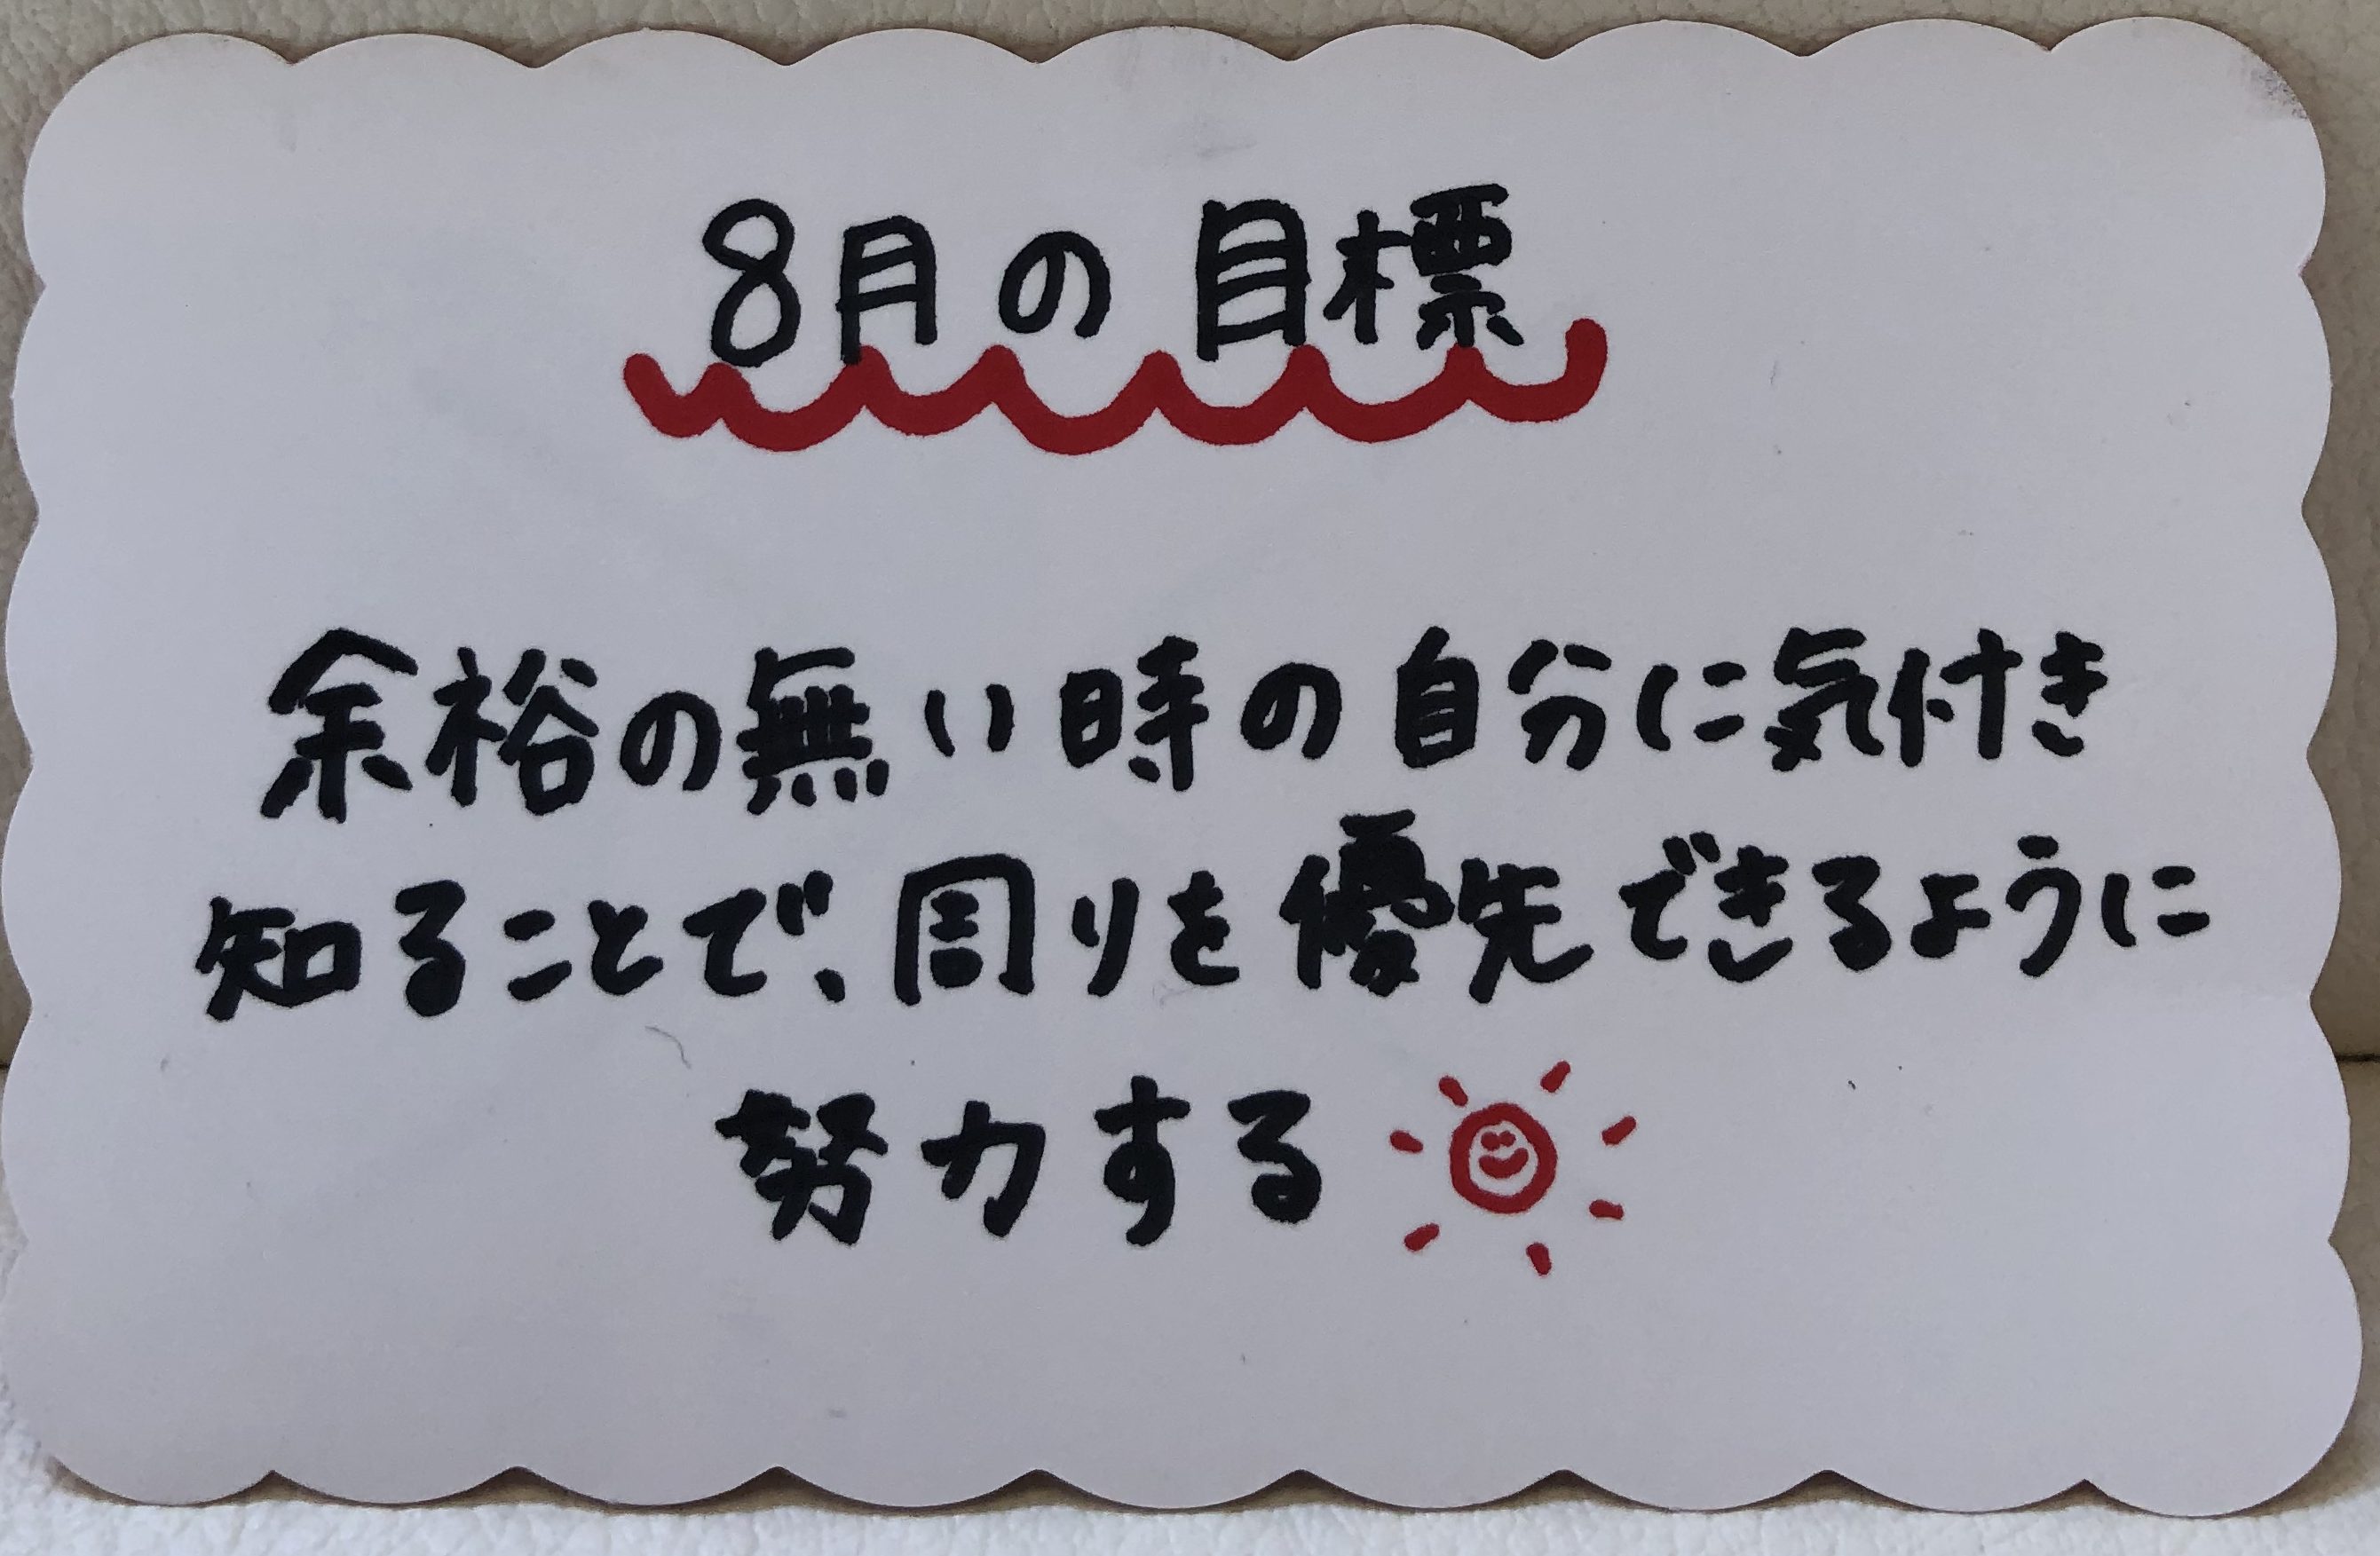 8月の目標
余裕の無い時の自分に気付き
知ることで、周りを優先できるように
努力する